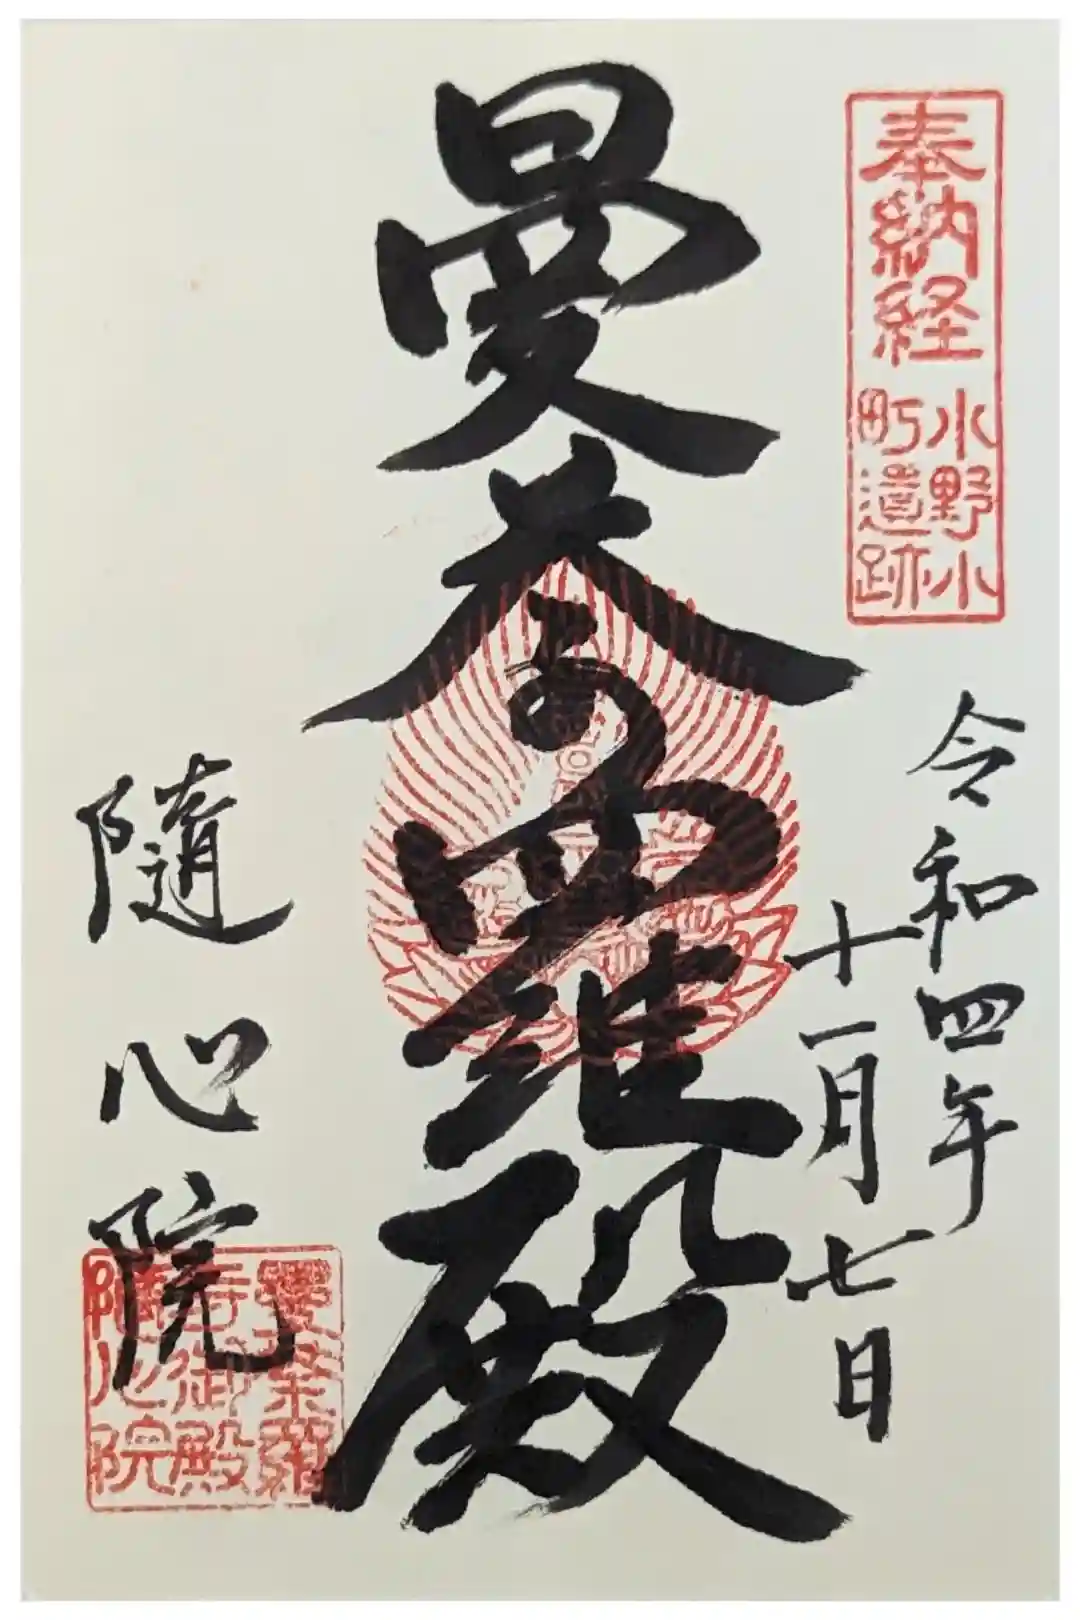 奉納経
小野小
町遺跡
令和四年
十一月七日
曼荼羅殿
随心院
曼荼羅
寺御殿
隨心院